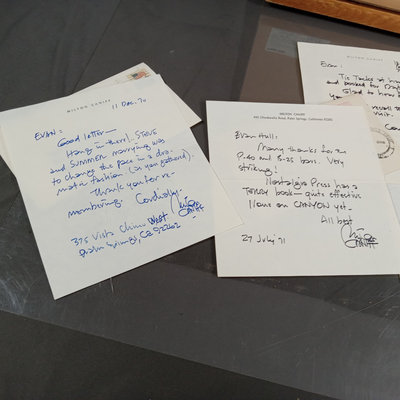 MILTON CANIFF
11 Dec. 70
EVAN:
Good letter—
Hang in there! STEVE
and SUMMER marrying was
to change the pace in a dra-
matic fashion (as you gathered).
Thank you for re-
membering. Cordially,
CANIFF
375 Vista Chino West
Palm Springs, CA 92262
MILTON CANIFF
Palm Springs, California
Evan Hall:
Many thanks for the
P-40 and B-25 bars. Very
striking!
Nostalgia Press has a
TERRY book— quite effective
None on CANYON yet.
All best
CANIFF
27 July 71
MILTON CANIFF
Evan:
Tie Tacks at
and booked for
Glad to
recall
visit.